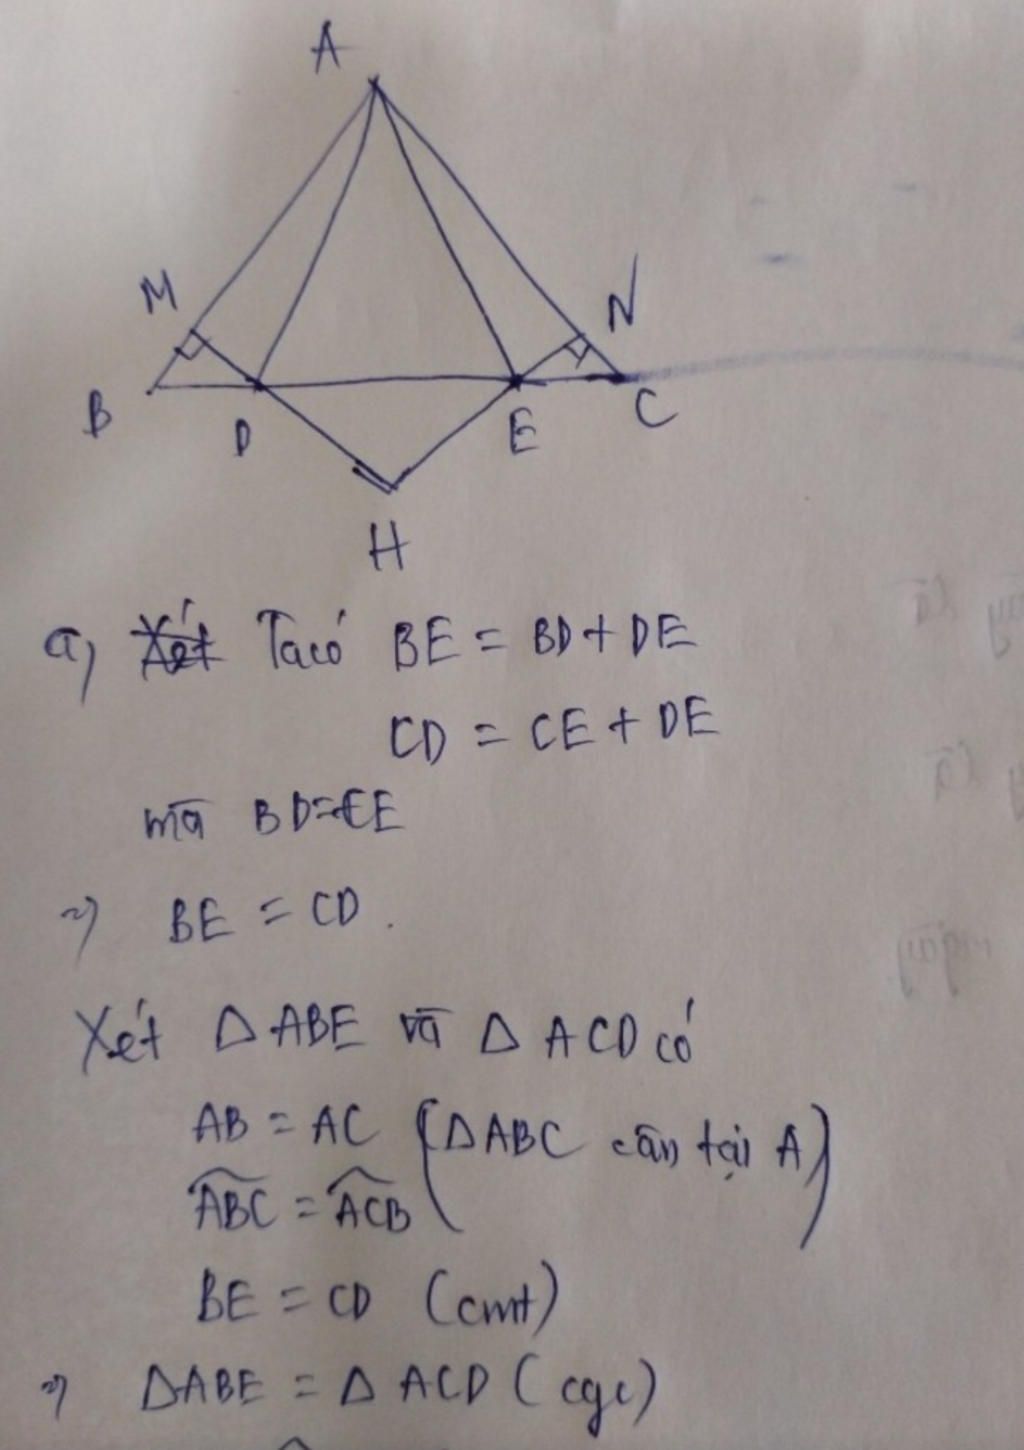 A
M
N
B
D
E
C
H
a) Xét Ta có BE = BD + DE
CD = CE + DE
mà BD = CE
=> BE = CD.
Xét Δ ABE và Δ ACD có
AB = AC (ΔABC cân tại A)
ABC = ACB
BE = CD (cmt)
=> ΔABE = Δ ACD (cgc)